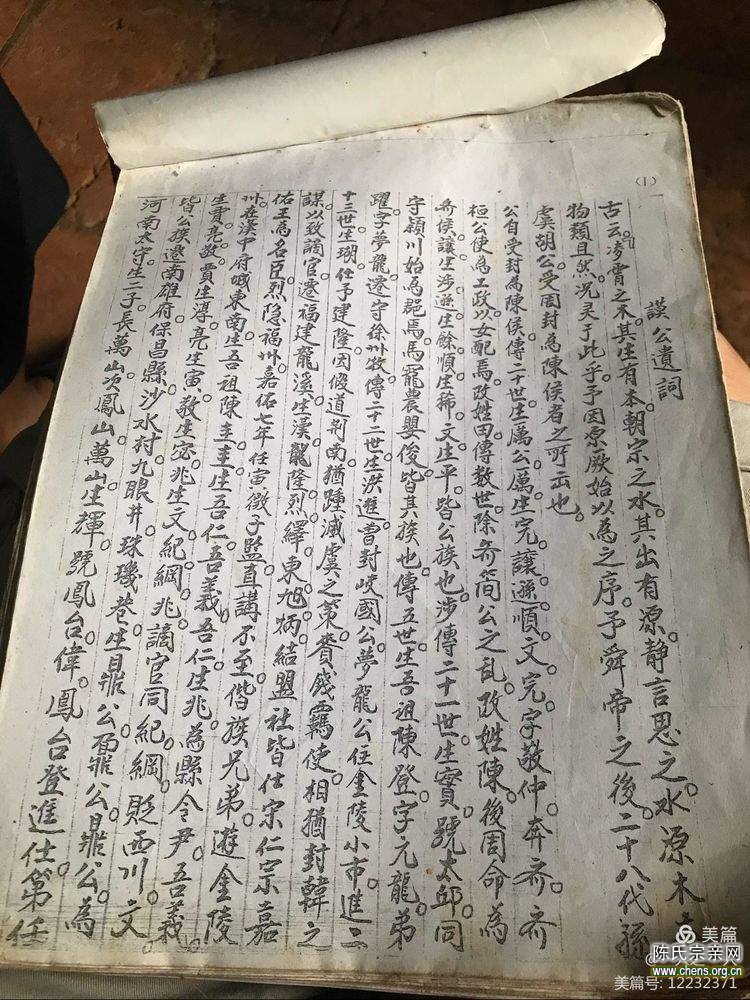 (1)
謨公遺詞
古云凌霄之木其生有本朝宗之水其出有源静言思之水源木
物類且然况灵于此乎予因原厥始以為之序予舜帝之後二十八代孫
虞胡公受周封為陳侯者之所出也
公自受封為陳侯傳二十世生厲公厲生完讓遜順文完字敬仲奔齐齐
桓公使為工政以女配焉改姓田傳数世除齐简公之乱改姓陳後周命為
齐侯讓生涉遜生餘順生稀文生平皆公族也涉傳二十一世生實號太邱同
守颍川始為郡焉馬寵農嬰俊皆其族也傳五世生吾祖陳登字元龍弟
躍字夢龍遷守徐州牧傳二十二世生洪進曹封岐國公夢龍公住金陵小市進二
十三世生珝任予建隆因假道荆南猶踵滅虞之策賫餞霱使相猶封韓之
謀以致謫官遷福建龍溪生漢龍隆烈繹東旭炳結盟社皆仕宋仁宗嘉
佑王為名臣烈隐福州嘉佑七年任寅徵子監直講不至偕族兄弟遊金陵
州在漢中府峸東南生吾祖陳圭圭生吾仁吾義吾仁生兆為縣令尹吾義
生賈亮敎賈生淳亮生寅敎生宓兆生文紀綱兆謫官同紀綱貶西川文
皆公族遷南雄府保昌縣沙水村九眼井珠璣巷生鼎公鼐公鼎公為
河南太守生二子長萬山次鳳山萬山生輝號鳳台偉鳳台登進仕第任
美篇
陈氏宗亲网
www.chens.org.cn
美篇号: 12232371